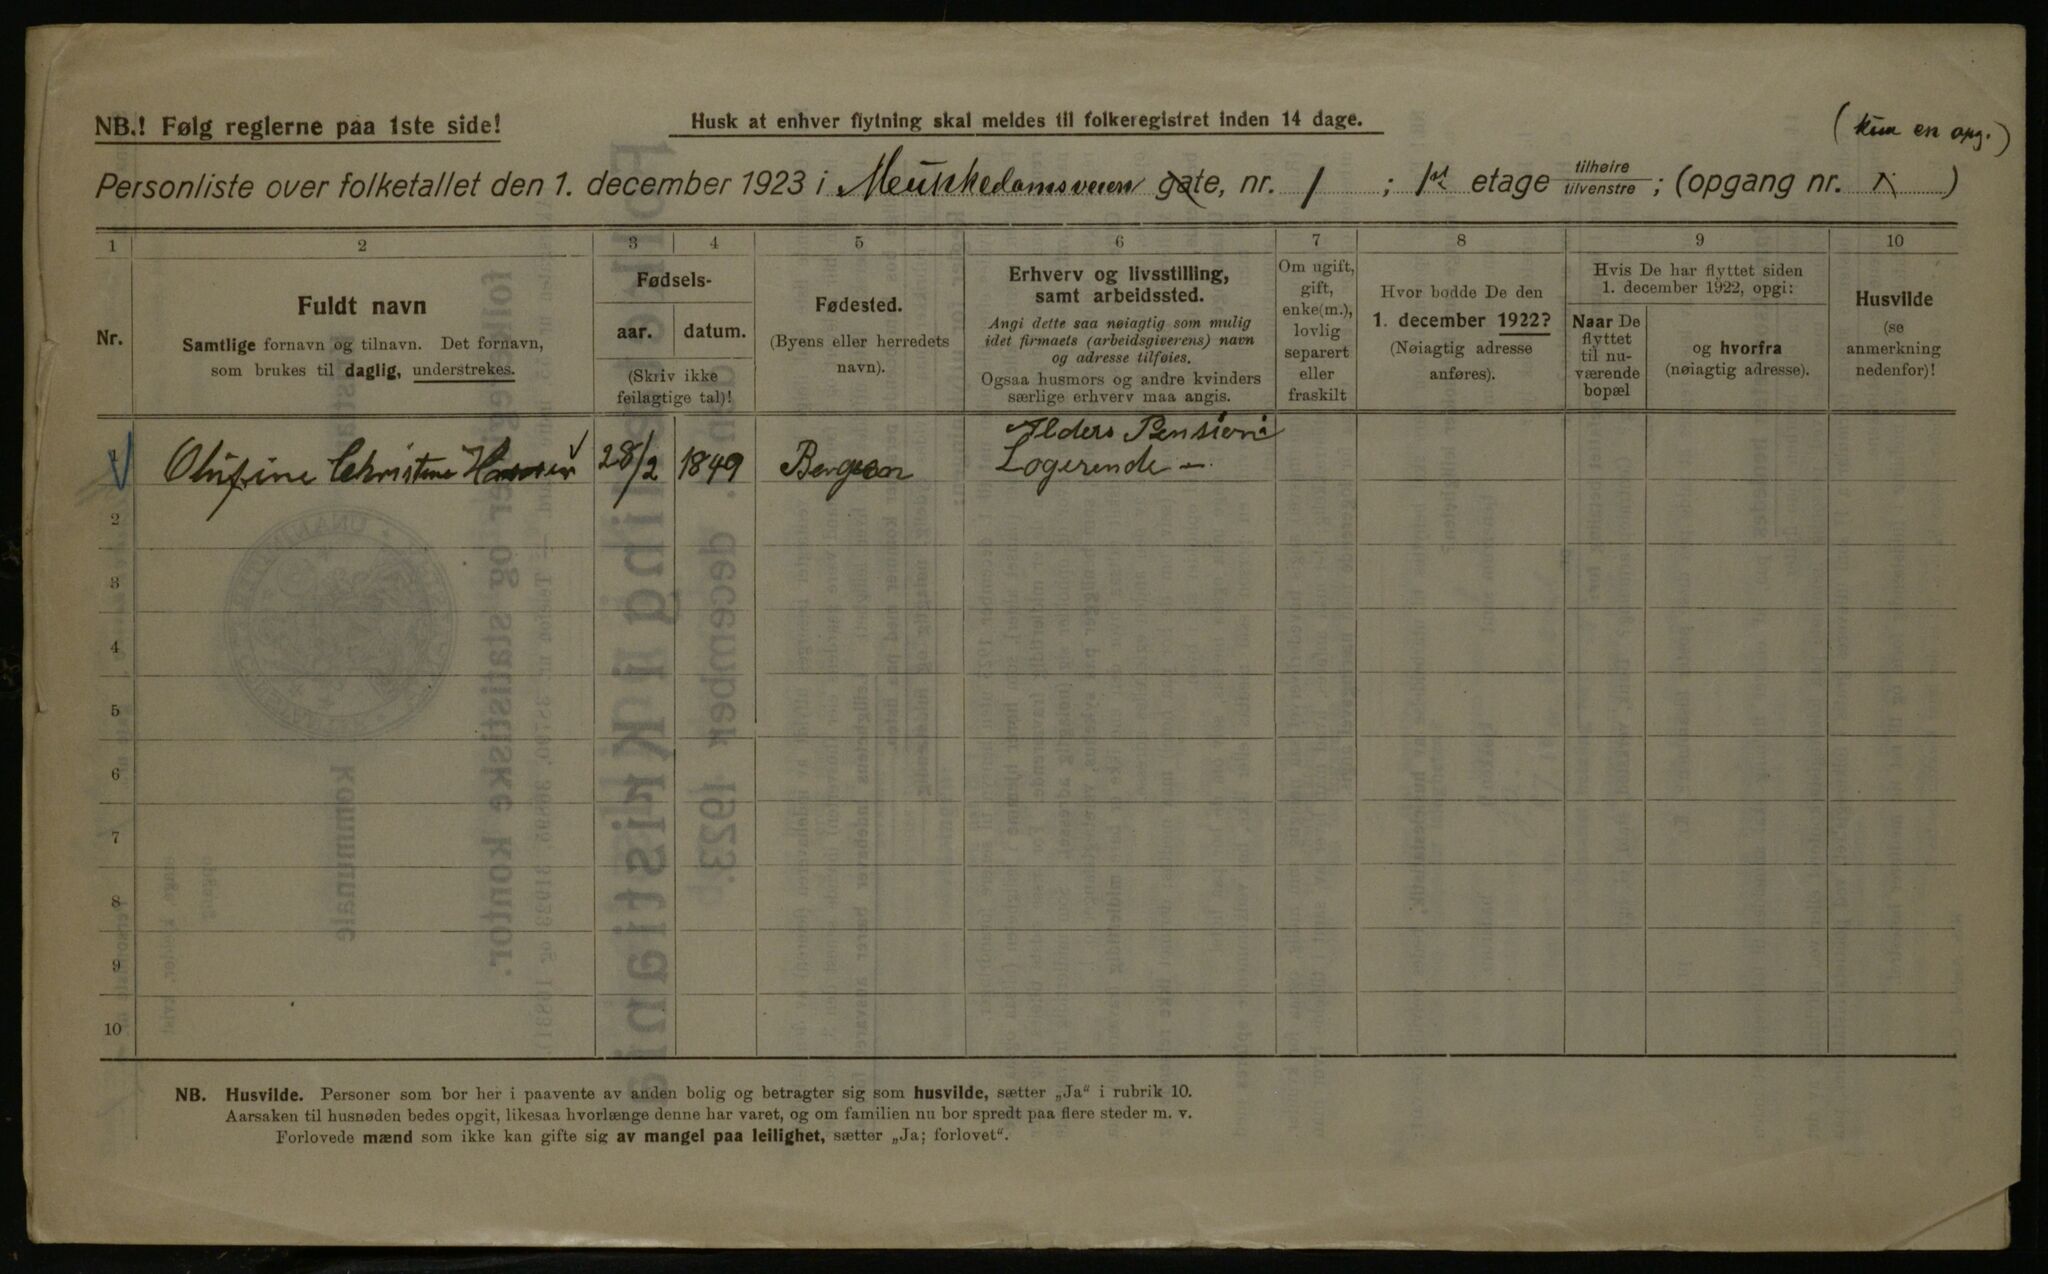 NB.! Følg reglerne paa 1ste side!
Husk at enhver flytning skal meldes til folkeregistret inden 14 dage.
(kun en opg.)
Personliste over folketallet den 1. december 1923 i Munkkedamsveien gate, nr. 1 ; 1ste etage tilhøire tilvenstre ; (opgang nr. )
1 2 3 4 5 6 7 8 9 10
Nr.
Fuldt navn
Samtlige fornavn og tilnavn. Det fornavn,
som brukes til daglig, understrekes.
Fødsels-
aar. datum.
(Skriv ikke
feilagtige tal)!
Fødested.
(Byens eller herredets
navn).
Erhverv og livsstilling,
samt arbeidssted.
Angi dette saa nøiagtig som mulig
idet firmaets (arbeidsgiverens) navn
og adresse tilføies.
Ogsaa husmors og andre kvinders
særlige erhverv maa angis.
Om ugift,
gift,
enke(m.),
lovlig
separert
eller
fraskilt
Hvor bodde De den
1. december 1922?
(Nøiagtig adresse
anføres).
Hvis De har flyttet siden
1. december 1922, opgi:
Naar De
flyttet
til nu-
værende
bopæl
og hvorfra
(nøiagtig adresse).
Husvilde
(se
anmerkning
nedenfor)!
Alders Pension
1 Olufine Christine Hansen 28/2 1849 Bergen Logerende
2
3
4
5
6
7
8
9
10
NB. Husvilde. Personer som bor her i paavente av anden bolig og betragter sig som husvilde, sætter „Ja" i rubrik 10.
Aarsaken til husnøden bedes opgit, likesaa hvorlænge denne har varet, og om familien nu bor spredt paa flere steder m. v.
Forlovede mænd som ikke kan gifte sig av mangel paa leilighet, sætter „Ja; forlovet".